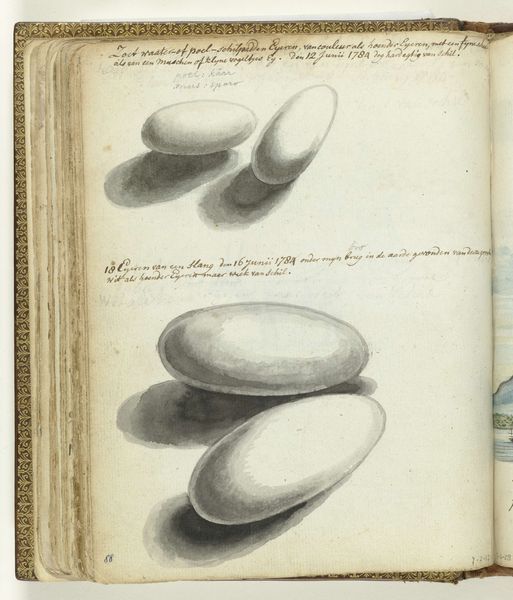 Zoet waater-of poel-schilpadden Eyeren, van couleur als hoender Eyeren, met een fyne
als van een Musschen of klyne vogeltjes Ey. den 12 Junii 1784 dog hardagtig van Schil.
poel: kärr
18 Eyeren van een slang den 16 Junii 1784 onder myn brug in de aarde gevonden van
bro
wit als hoender Eyeren maar week van Schil.
88